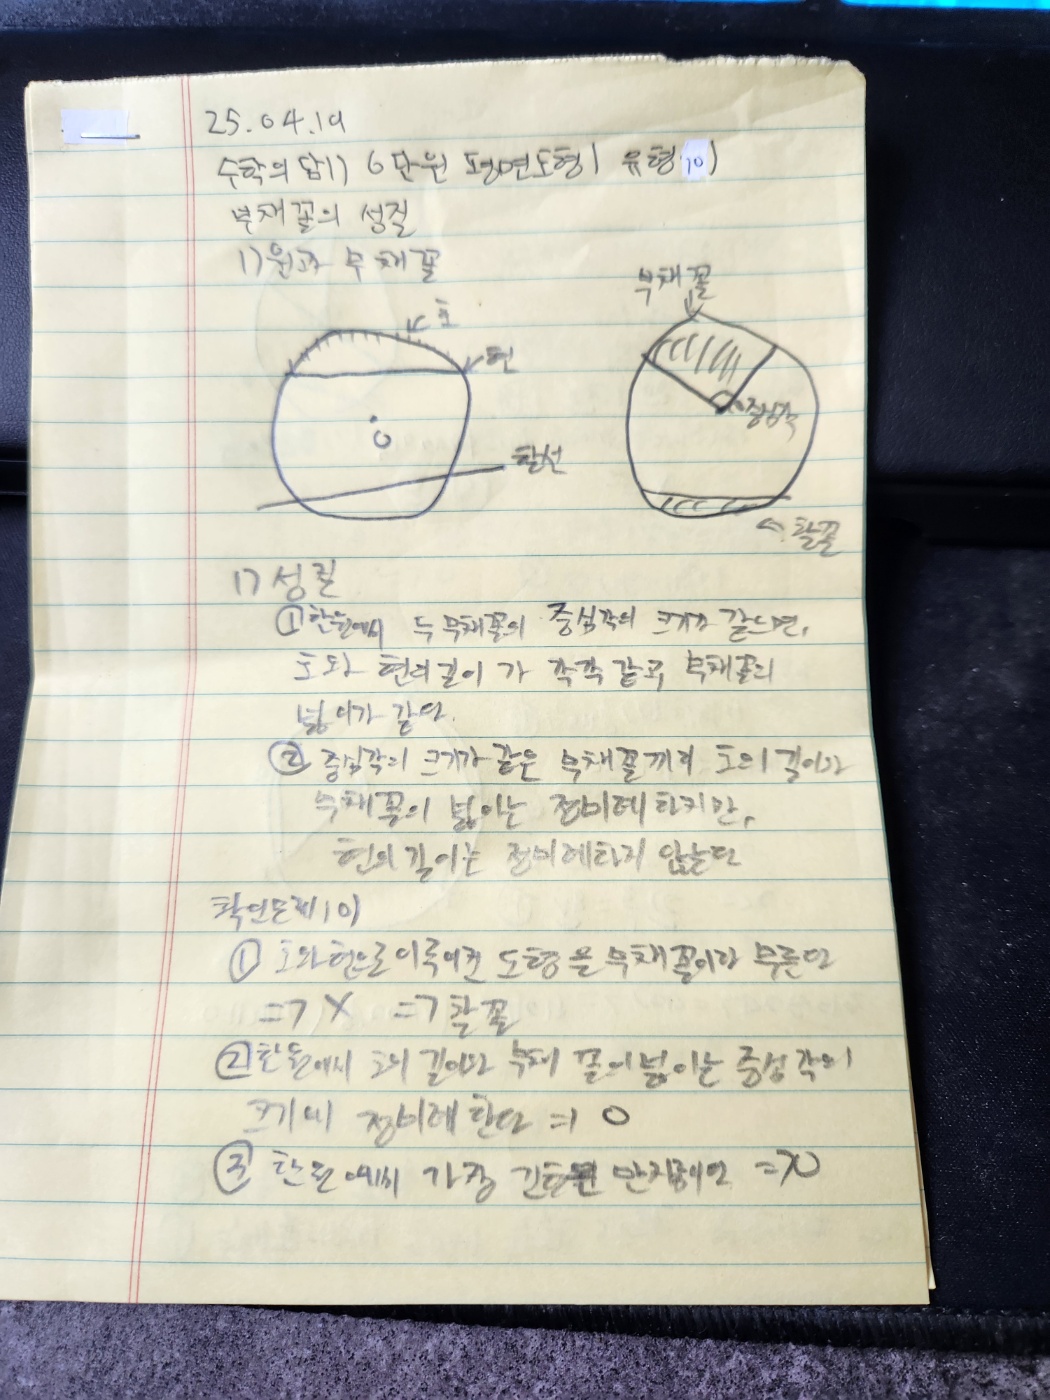 25.04.19
수학의 답1) 6단원 평면도형1 유형10)
부채꼴의 성질
1) 원과 부채꼴
부채꼴
호
현
중심각
O
할선
활꼴
1) 성질
① 한원에서 두 부채꼴의 중심각의 크기가 같으면,
호와 현의길이 가 각각 같고 부채꼴의
넓이가 같다.
② 중심각의 크기가 같은 부채꼴끼리 호의 길이와
부채꼴의 넓이는 정비례하지만,
현의 길이는 정비례하지 않는다
확인문제10)
① 호와현으로이루어진 도형을 부채꼴이라 부른다
=> X => 활꼴
② 한원에서 호의 길이와 부채 꼴의넓이는 중심각의
크기에 정비례한다 => O
③ 한원에서 가장 긴 현 => O